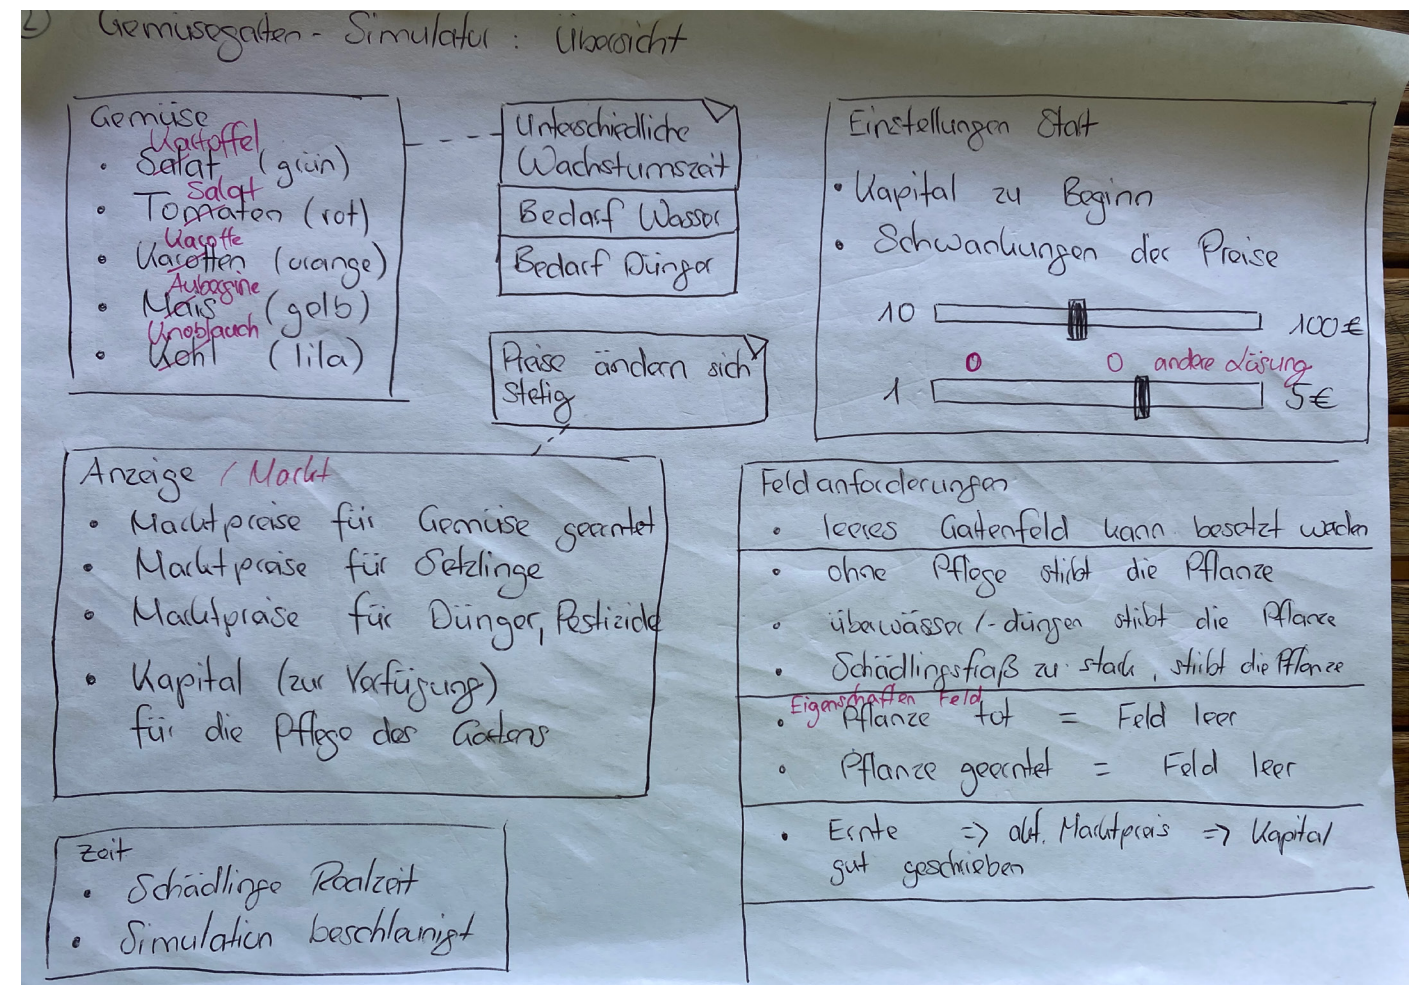 2) Gemüsegarten - Simulator : Übersicht
Gemüse
Kartoffel
• Salat (grün)
Salat
• Tomaten (rot)
Karotte
• Karotten (orange)
Aubergine
• Mais (gelb)
Knoblauch
• Kohl (lila)
Unterschiedliche
Wachstumszeit
Bedarf Wasser
Bedarf Dünger
Preise ändern sich
stetig
Einstellungen Start
• Kapital zu Beginn
• Schwankungen der Preise
10 100€
O O andere Lösung
1 5€
Anzeige / Markt
• Marktpreise für Gemüse geerntet
• Marktpreise für Setzlinge
• Marktpreise für Dünger, Pestizide
• Kapital (zur Verfügung)
für die Pflege des Gartens
Feldanforderungen
• leeres Gartenfeld kann besetzt werden
• ohne Pflege stirbt die Pflanze
• überwässer/-düngen stirbt die Pflanze
• Schädlingsfraß zu stark, stirbt die Pflanze
Eigenschaften Feld
• Pflanze tot = Feld leer
• Pflanze geerntet = Feld leer
• Ernte => akt. Marktpreis => Kapital
gut geschrieben
Zeit
• Schädlinge Realzeit
• Simulation beschleunigt